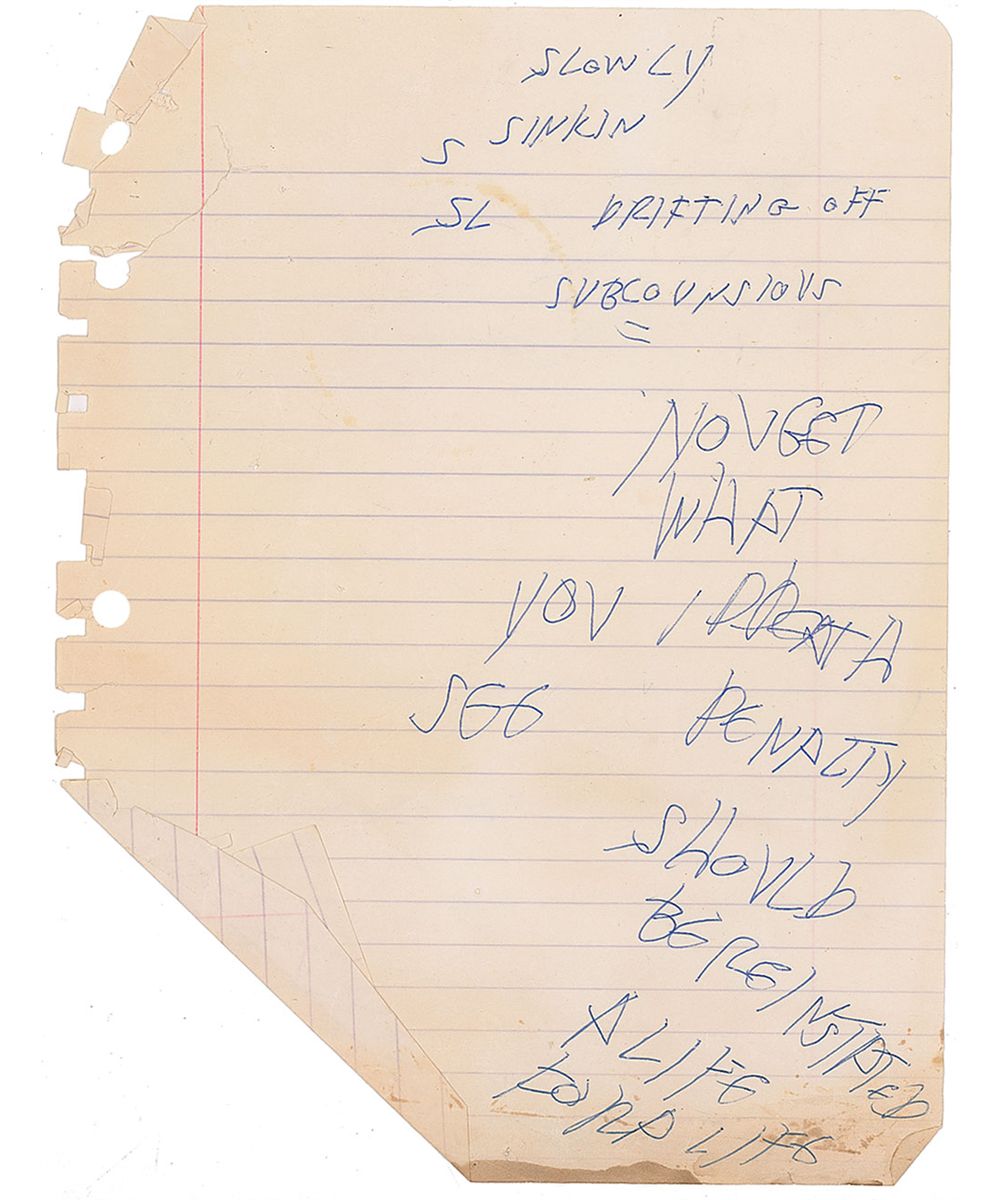 SLOWLY
SINKIN
S
SL DRIFTING OFF
SUBCOUNSIOUS
WHAT
YOU
SEE PENALTY
SHOULD
BE REINSTATED
A LIFE
FOR A LIFE